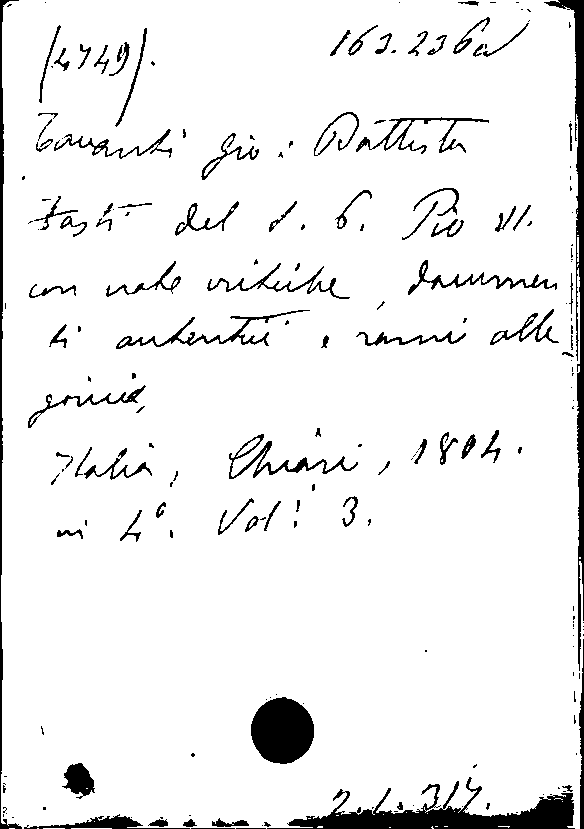 (4749). 163.236a
Tavanti Gio: Battista
Fasti del S. P. Pio VI.
con note critiche, documen
ti autentici e rami alle
gorici,
Italia, Chiari, 1804.
in 4°. Vol! 3.
2.1.317.